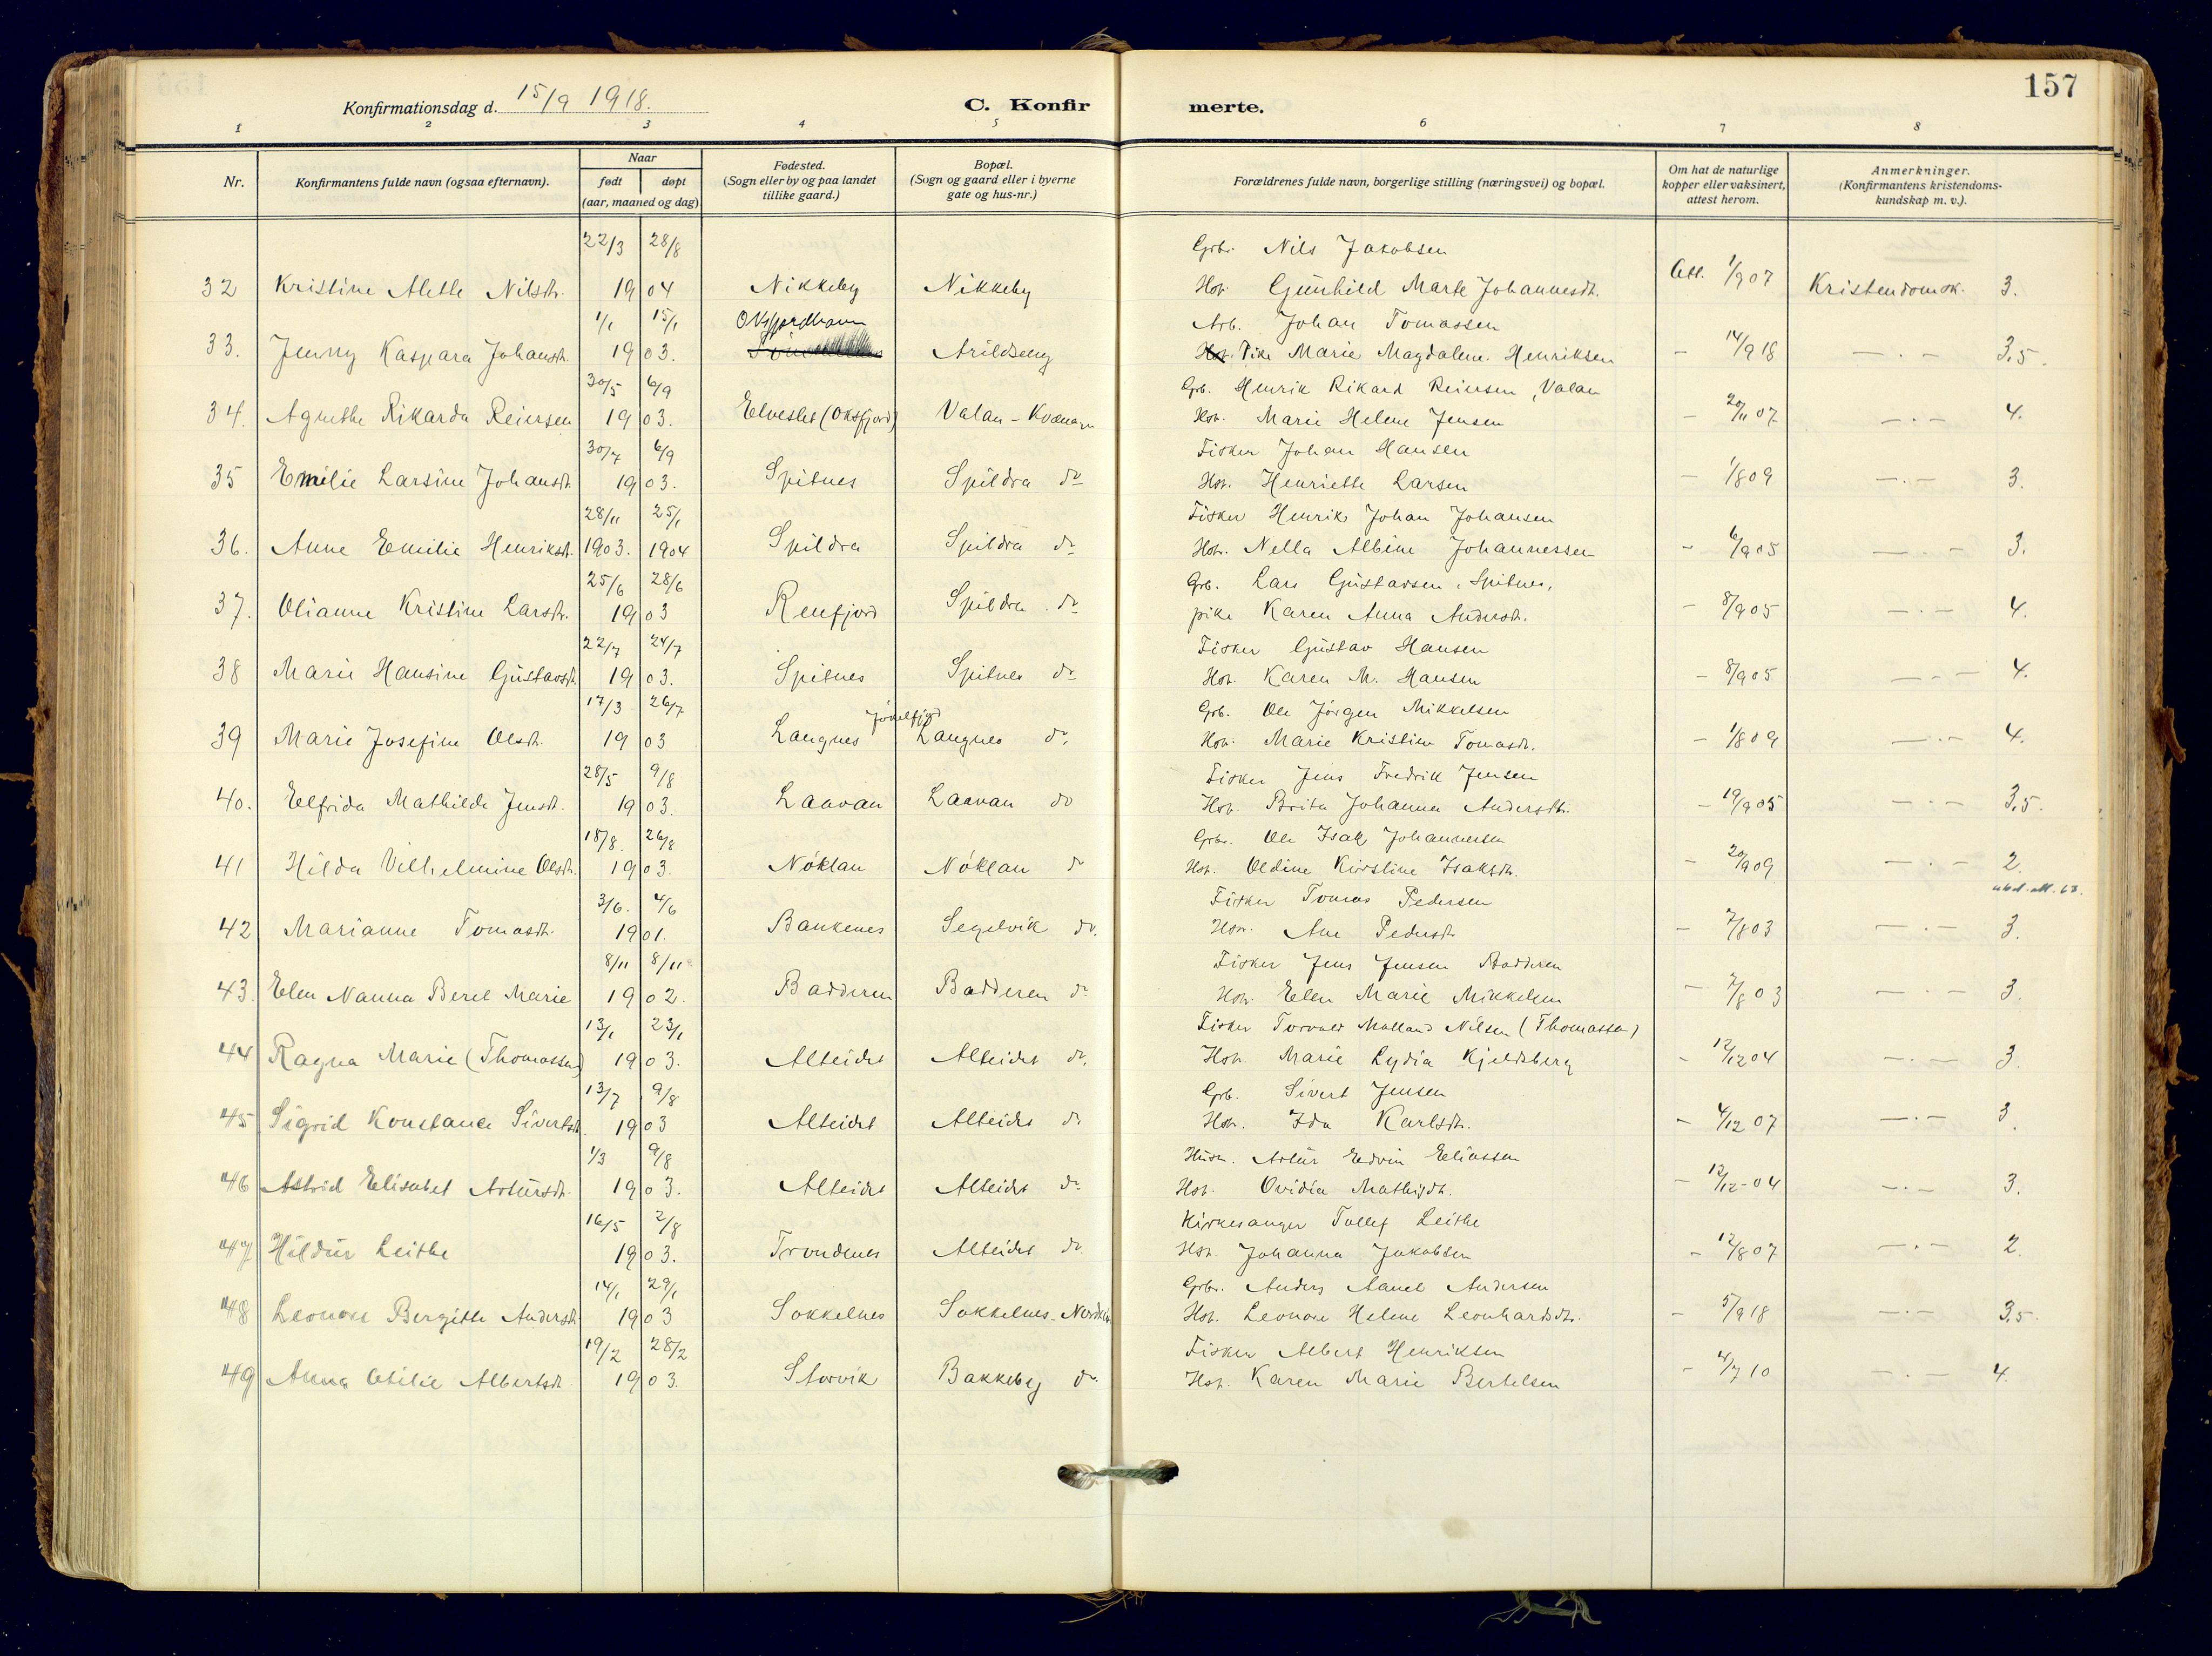 157
Konfirmationsdag d. 15/9 1918.
C. Konfir merte.
1 2 3 4 5 6 7 8
Nr.
Konfirmantens fulde navn (ogsaa efternavn).
Naar
født døpt
(aar, maaned og dag)
Fødested.
(Sogn eller by og paa landet
tillike gaard.)
Bopæl.
(Sogn og gaard eller i byerne
gate og hus-nr.)
Forældrenes fulde navn, borgerlige stilling (næringsvei) og bopæl.
Om hat de naturlige
kopper eller vaksinert,
attest herom.
Anmerkninger.
(Konfirmantens kristendoms-
kundskap m. v.).
22/3 28/8 Gbr. Nils Jakobsen
32 Kristine Alette Nilsdt. 1904 Nikkeby Nikkeby Hst. Gunhild Marte Johannesdt. Att. 1/9 07 Kristendomsk. 3.
1/1 15/1 Oksfjordhavn Arb. Johan Tomassen
33. Jenny Kaspara Johansdt. 1903. Arildseng Pike Marie Magdalene Henriksen - 14/9 18 — · — 3,5.
30/5 6/9 Gb. Henrik Rikard Reiersen, Valan
34. Agnethe Rikarda Reiersen 1903. Elveslet (Oksfjord) Valan - Kvænangen Hst. Marie Helene Jensen - 20/11 07 — · — 4.
30/7 6/9 Fisker Johan Hansen
35 Emilie Larsine Johansdt. 1903. Spitnes Spildra do Hst. Henriette Larsen - 1/8 09 — · — 3.
28/11 25/1 Fisker Henrik Johan Johansen
36. Anne Emilie Henriksdt. 1903. 1904 Spildra Spildra do Hst. Nella Albine Johannessen - 6/9 05 — · — 3.
25/6 28/6 Gb. Lars Gustavsen, Spitnes,
37. Olianne Kristine Larsdt. 1903 Renfjord Spildra do pike Karen Anna Andersdt. - 8/9 05 — · — 4.
22/7 24/7 Fisker Gustav Hansen
38 Marie Hansine Gustavsdt. 1903. Spitnes Spitnes do Hst. Karen M. Hansen - 8/9 05 — · — 4.
17/3 26/7 Jökelfjord Gb. Ole Jörgen Mikkelsen
39 Marie Josefine Olsdt. 1903 Langnes Langnes do. Hst. Marie Kristine Tomasdt. - 1/8 09 — · — 4.
28/5 9/8 Fisker Jens Fredrik Jensen
40. Elfrida Mathilde Jensdt. 1903. Laavan Laavan do Hst. Brita Johanna Andersdt. - 19/9 05 — · — 3,5.
18/8. 26/8 Gbr. Ole Isak Johannesen
41 Hilda Vilhelmine Olsdt. 1903. Nöklan Nöklan do Hst. Oldine Kirstine Isaksdt. - 20/9 09 — · — 2.
3/6. 4/6 Fisker Tomas Pedersen
42 Marianne Tomasdt. 1901. Bankenes Segelvik do. Hst. Ane Pedersdt. - 7/8 03 — · — 3.
8/11 8/11 Fisker Jens Jensen Badderen
43. Elen Nanna Berel Marie 1902. Badderen Badderen do Hst. Elen Marie Mikkelsen - 7/8 03 — · — 3.
13/1 23/1 Fisker Torvald Nilsen (Thomassen)
44 Ragna Marie (Thomassen) 1903. Alteidet Alteidet do. Hst. Marie Lydia Kjeldsberg - 12/12 04 — · — 3.
13/7 9/8 Gb. Sivert Jensen
45 Sigrid Konstance Sivertsdt. 1903 Alteidet Alteidet do Hst. Ida Karlsdt. - 4/12 07 — · — 3.
1/3 9/8 Husm. Artur Edvin Eliassen
46 Astrid Elisabet Artursdt. 1903. Alteidet Alteidet do Hst. Ovidia Mathisdt. - 12/12-04 — · — 3.
16/5 2/8 Kirkesanger Tollef Leithe
47 Hildur Leithe 1903. Trondenes Alteidet do Hst. Johanna Jakobsen - 12/8 07 — · — 2.
14/1 29/1 Gbr. Anders Aanet Andersen
48 Leonore Bergitte Andersdt. 1903 Sokkelnes Sokkelnes - Hst. Leonore Helene Leonhardsdt. - 5/9 18 — · — 3,5.
19/2 28/2 Fisker Albert Henriksen
49 Anna Otilie Albertsdt. 1903. Storvik Bakkeby do. Hst. Karen Marie Bertelsen - 4/7 10 — · — 4.